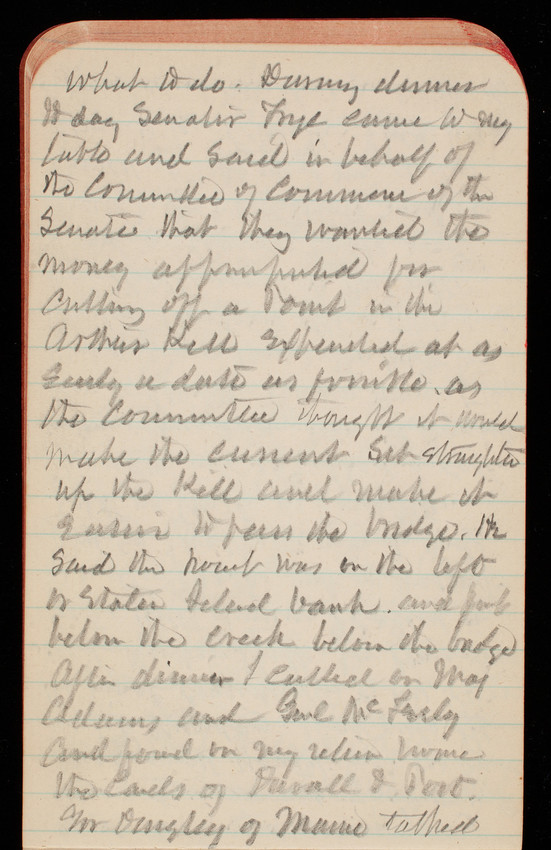 what to do. During dinner
to day Senator Frye came to my
table and said in behalf of
the Committee of Commerce of the
Senate that they wanted the
money appropriated for
cutting off a Point in the
Arthur Kill Expended at as
Early a date as possible. as
the Committee thought it would
make the current Set straighter
up the Kill and make it
Easier to pass the bridge. He
said the point was on the left
or Staten Island bank. and just
below the creek below the bridge
After dinner I called on Maj
Adams and Genl Mc Feely
and found on my return home
the Cards of &
Gov Dingley of Maine talked